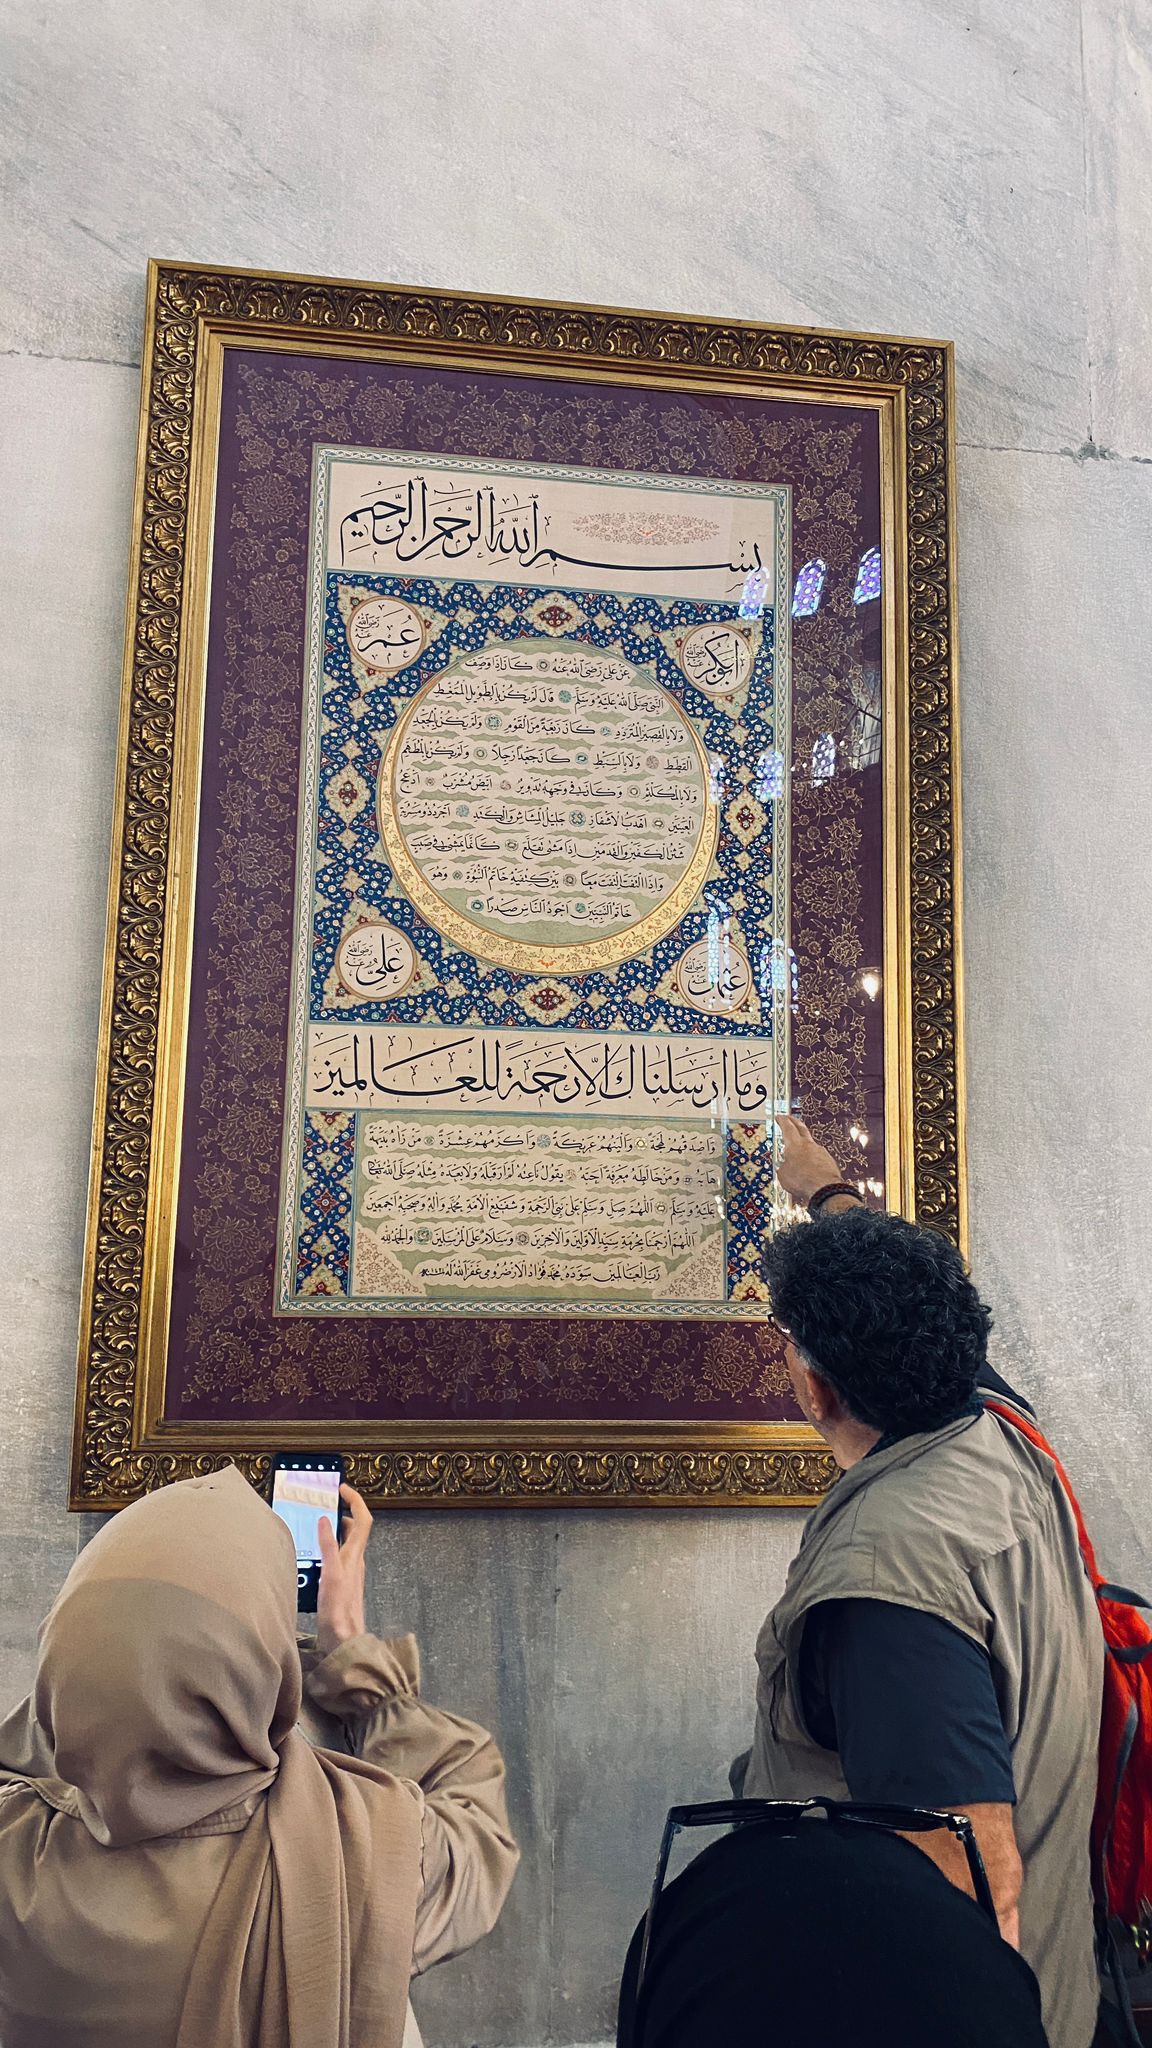 بسم الله الرحمن الرحيم
ابوبكر رضي الله عنه
عمر رضي الله عنه
عن علي رضي الله عنه كان اذا وصف
النبي صلى الله عليه وسلم قال لم يكن بالطويل الممغط
ولا بالقصير المتردد كان ربعة من القوم ولم يكن بالجعد
القطط ولا بالسبط كان جعدا رجلا ولم يكن بالمطهم
ولا بالمكلثم وكان في وجهه تدوير ابيض مشرب ادعج
العينين اهدب الاشفار جليل المشاش والكتد اجرد ذو مسربة
شثن الكفين والقدمين اذا مشى تقلع كانما يمشي في صبب
واذا التفت التفت معا بين كتفيه خاتم النبوة وهو
خاتم النبيين اجود الناس صدرا
عثمان رضي الله عنه
علي رضي الله عنه
وما ارسلناك الا رحمة للعالمين
واصدقهم لهجة والينهم عريكة واكرمهم عشرة من رآه بديهة
هابه ومن خالطه معرفة احبه يقول ناعته لم ار قبله ولا بعده مثله صلى الله تعالى
عليه وسلم اللهم صل وسلم على نبي الرحمة وشفيع الامة محمد وآله وصحبه اجمعين
اللهم ارحمنا بحرمة سيد الاولين والآخرين وسلام على المرسلين والحمد لله
رب العالمين سوده محمد فؤاد الارضرومي غفر الله له